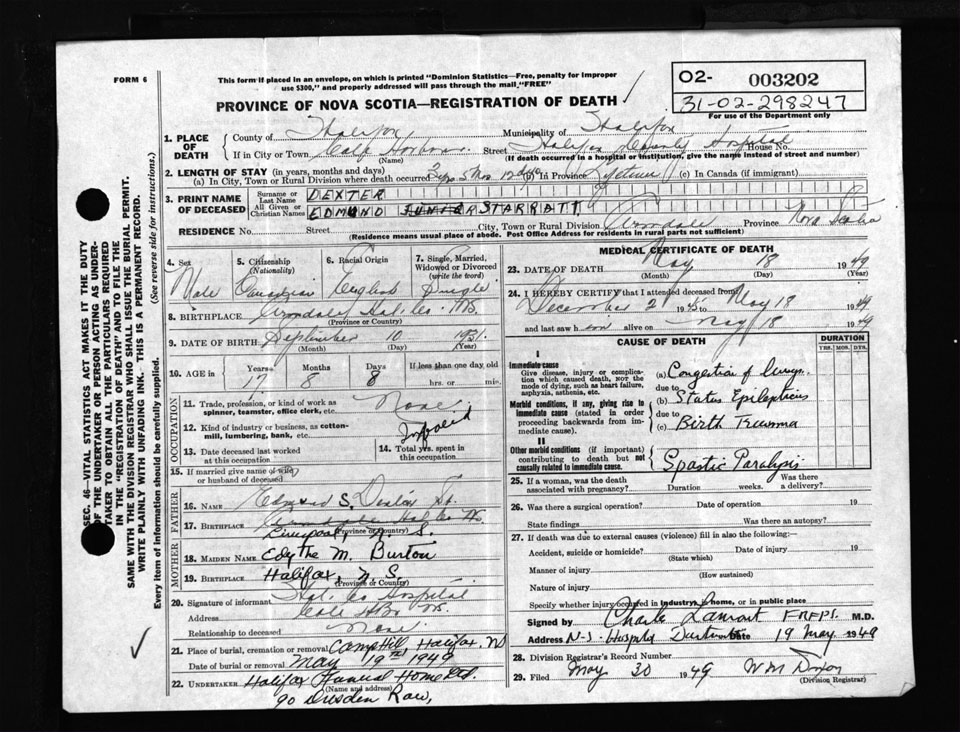 FORM 6
This form if placed in an envelope, on which is printed "Dominion Statistics—Free, penalty for improper
use $300," and properly addressed will pass through the mail, "FREE"
02- 003202
31-02-298247
For use of the Department only
PROVINCE OF NOVA SCOTIA—REGISTRATION OF DEATH
1. PLACE OF DEATH
County of Halifax Municipality of Halifax
If in City or Town Cole Harbour Street Halifax County Hospital House No.
(Name) (If death occurred in a hospital or institution, give the name instead of street and number)
2. LENGTH OF STAY (in years, months and days)
(a) In City, Town or Rural Division where death occurred 3 yrs 5 mos 12 dys (b) In Province Lifetime (c) In Canada (if immigrant)
3. PRINT NAME OF DECEASED
Surname or Last Name DEXTER
All Given or Christian Names EDMUND JUNIER STARRATT
RESIDENCE No. Street City, Town or Rural Division Armdale Province Nova Scotia
(Residence means usual place of abode. Post Office Address for residents in rural parts not sufficient)
4. Sex Male
5. Citizenship (Nationality) Canadian
6. Racial Origin English
7. Single, Married, Widowed or Divorced (write the word) Single
8. BIRTHPLACE Armdale Hal. Co. N.S.
(Province or Country)
9. DATE OF BIRTH September 10 1931
(Month) (Day) (Year)
10. AGE in Years Months Days If less than one day old
17 8 8 hrs. or min.
OCCUPATION
11. Trade, profession, or kind of work as spinner, teamster, office clerk, etc. None
12. Kind of industry or business, as cotton-mill, lumbering, bank, etc. Invalid
13. Date deceased last worked at this occupation
14. Total yrs. spent in this occupation
15. If married give name of wife or husband of deceased
FATHER
16. NAME Edmund S. Dexter Sr.
17. BIRTHPLACE Armdale Hal. Co. N.S.
Liverpool, N. S.
(Province or Country)
MOTHER
18. MAIDEN NAME Edythe M. Burton
19. BIRTHPLACE Halifax, N. S.
(Province or Country)
20. Signature of informant Hal. Co Hospital
Address Cole Hbr NS.
Relationship to deceased None
21. Place of burial, cremation or removal Camp Hill, Halifax, NS
Date of burial or removal May 19th, 1949
22. UNDERTAKER Halifax Funeral Home Ltd.
(Name and address)
90 Dresden Row,
MEDICAL CERTIFICATE OF DEATH
23. DATE OF DEATH May 18 1949
(Month) (Day) (Year)
24. I HEREBY CERTIFY that I attended deceased from
December 2 1945 to May 18 1949
and last saw him alive on May 18 1949
CAUSE OF DEATH
DURATION
YRS. MOS. DYS.
I
Immediate cause
Give disease, injury or complication which caused death, NOT the mode of dying, such as heart failure, asphyxia, asthenia, etc.
(a) Congestion of lungs.
due to
Morbid conditions, if any, giving rise to immediate cause (stated in order proceeding backwards from immediate cause).
(b) Status Epilepticus
due to
(c) Birth Trauma
II
Other morbid conditions (if important) contributing to death but not causally related to immediate cause.
Spastic Paralysis
25. If a woman, was the death associated with pregnancy? Duration weeks. Was there a delivery?
26. Was there a surgical operation? Date of operation 19
State findings Was there an autopsy?
27. If death was due to external causes (violence) fill in also the following:—
Accident, suicide or homicide? Date of injury 19
(State which)
Manner of injury
(How sustained)
Nature of injury
Specify whether injury occurred in industry, home, or in public place
Signed by Charles Lamont M.D.
Address N.S. Hospital Dartmouth Date 19 May 1949
28. Division Registrar's Record Number
29. Filed May 30 1949 W M Dixon
(Division Registrar)
SEC. 46—VITAL STATISTICS ACT MAKES IT THE DUTY
OF THE UNDERTAKER OR PERSON ACTING AS UNDER-
TAKER TO OBTAIN ALL THE PARTICULARS REQUIRED
IN THE "REGISTRATION OF DEATH" AND TO FILE THE
SAME WITH THE DIVISION REGISTRAR WHO SHALL ISSUE THE BURIAL PERMIT.
WRITE PLAINLY WITH UNFADING INK. THIS IS A PERMANENT RECORD.
Every item of information should be carefully supplied. (See reverse side for instructions.)